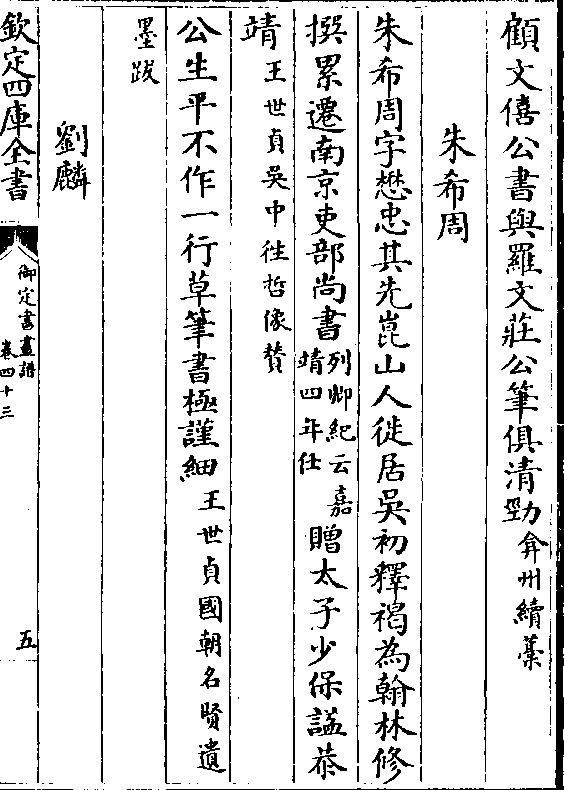 顧文僖公書與羅文莊公筆俱清勁弇州續藁
朱希周
朱希周字懋忠其先崑山人徙居吳初釋褐為翰林修
撰累遷南京吏部尚書列卿紀云嘉靖四年任贈太子少保諡恭
靖王世貞吳中徃哲像贊
公生平不作一行草筆書極謹細王世貞國朝名賢遺
墨跋
劉麟
欽定四庫全書
御定書畫譜
卷四十三
五